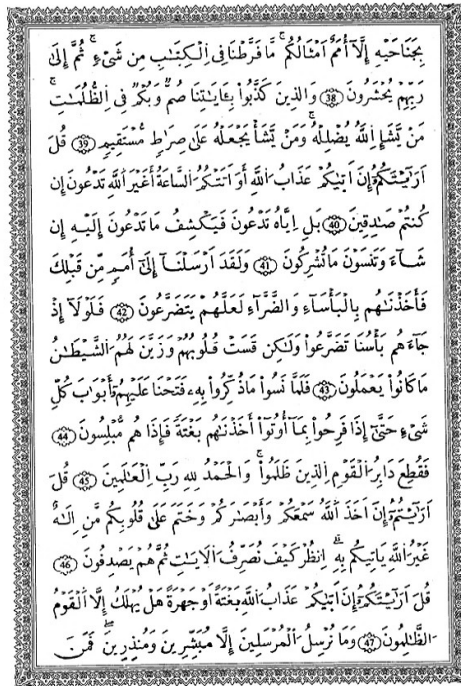 بِجَنَاحَيْهِ إِلَّا أُمَمٌ أَمْثَالُكُم مَّا فَرَّطْنَا فِي الْكِتَٰبِ مِن شَيْءٍ ثُمَّ إِلَىٰ
رَبِّهِمْ يُحْشَرُونَ 38 وَالذِينَ كَذَّبُوا بِـَٔايَٰتِنَا صُمٌّ وَبُكْمٌ فِي الظُّلُمَٰتِ
مَنْ يَّشَإِ اللَّهُ يُضْلِلْهُ وَمَنْ يَّشَأْ يَجْعَلْهُ عَلَىٰ صِرَٰطٍ مُّسْتَقِيمٍ 39 قُلَ
اَرَٰٓيْتَكُمُۥٓ إِنَ اَتَىٰكُمْ عَذَابُ اللَّهِ أَوَ اَتَتْكُمُ السَّاعَةُ أَغَيْرَ اللَّهِ تَدْعُونَ إِن
كُنتُمْ صَٰدِقِينَ 40 بَلِ اِيَّاهُ تَدْعُونَ فَيَكْشِفُ مَا تَدْعُونَ إِلَيْهِ إِن
شَآءَ وَتَنسَوْنَ مَا تُشْرِكُونَ 41 وَلَقَدَ اَرْسَلْنَآ إِلَىٰٓ أُمَمٍ مِّن قَبْلِكَ
فَأَخَذْنَٰهُم بِالْبَأْسَآءِ وَالضَّرَّآءِ لَعَلَّهُمْ يَتَضَرَّعُونَ 42 فَلَوْلَآ إِذْ
جَآءَهُم بَأْسُنَا تَضَرَّعُوا وَلَٰكِن قَسَتْ قُلُوبُهُمْ وَزَيَّنَ لَهُمُ الشَّيْطَٰنُ
مَا كَانُوا يَعْمَلُونَ 43 فَلَمَّا نَسُوا مَا ذُكِّرُوا بِهِۦ فَتَحْنَا عَلَيْهِمُۥٓ أَبْوَٰبَ كُلِّ
شَيْءٍ حَتَّىٰٓ إِذَا فَرِحُوا بِمَآ أُوتُوٓا أَخَذْنَٰهُم بَغْتَةً فَإِذَا هُم مُّبْلِسُونَ 44
فَقُطِعَ دَابِرُ الْقَوْمِ الذِينَ ظَلَمُوا وَالْحَمْدُ لِلهِ رَبِّ الْعَٰلَمِينَ 45 قُلَ
اَرَٰٓيْتُمُۥٓ إِنَ اَخَذَ اَللَّهُ سَمْعَكُمْ وَأَبْصَٰرَكُمْ وَخَتَمَ عَلَىٰ قُلُوبِكُم مَّنِ اِلَٰهٌ
غَيْرُ اللَّهِ يَاتِيكُم بِهِ انظُرْ كَيْفَ نُصَرِّفُ الَايَٰتِ ثُمَّ هُمْ يَصْدِفُونَ 46
قُلَ اَرَٰٓيْتَكُمُۥٓ إِنَ اَتَىٰكُمْ عَذَابُ اَللَّهِ بَغْتَةً اَوْ جَهْرَةً هَلْ يُهْلَكُ إِلَّا الْقَوْمُ
الظَّٰلِمُونَ 47 وَمَا نُرْسِلُ الْمُرْسَلِينَ إِلَّا مُبَشِّرِينَ وَمُنذِرِينَ فَمَنَ